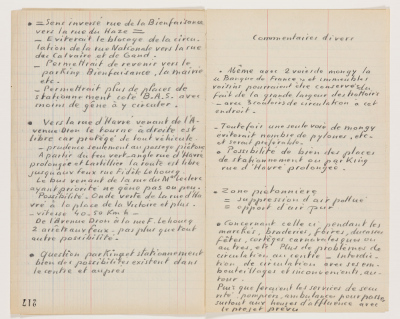 • = Sens inversé rue de la Bienfaisance
vers la rue du Haze =
– Eviterait le blocage de la circu-
lation de la rue Nationale vers la rue
du Calvaire et de Gand.
– Permettrait de revenir vers le
parking Bienfaisance, la mairie
etc.
– Permettrait plus de places de
stationnement coté B.A.S. avec
moins de gêne à y circuler.
• Vers la rue d'Havré venant de l'A-
venue Dron le tourne à droite est
libre car protégé de tout véhicule
– prudence seulement au passage piétons
A partir du feu vert angle rue d'Havré
prolongée et la route est libre
jusqu'aux feux rue Fidèle Lehoucq
Le bus venant de la rue du Mal Leclerc
ayant priorité ne gêne pas ou peu.
Possibilité. Onde verte de la rue d'Ha
vré à la place de la Victoire et plus.
– vitesse 40, 50 Km h –
De l'Avenue Dron à la rue F. Lehoucq
2 arrêts aux feux. pas plus que tout
autre possibilité.
• Question parking et stationnement
bien des possibilités existent dans
le centre et auprès
217
Commentaires divers
• Même avec 2 voies de mongy la
Banque de France et immeubles
voisins pourraient être conservés du
fait de la grande largeur des trottoirs
– avec 3 couloirs de circulation à cet
endroit.
– Toutefois une seule voie de mongy
eviterait nombre de pylones, etc–
et serait préférable.
• Possibilité de bien des places
de stationnement ou parking
rue d'Havré prolongée.
• Zone piétonnière
= suppression d'air pollué
= apport d'air pur
• Concernant celle ci, pendant les
marchés, braderies, foires, ducasses
fêtes, cortèges carnavalesques ou
autres, etc Plus de problèmes de
circulation au centre – Interdic-
tion de circulation avec ses em-
bouteillages et inconvénients, au-
tour.
Plus que feraient les services de sécu
rité pompiers, ambulances pour passer
surtout aux heures d'affluence avec
le projet prévu